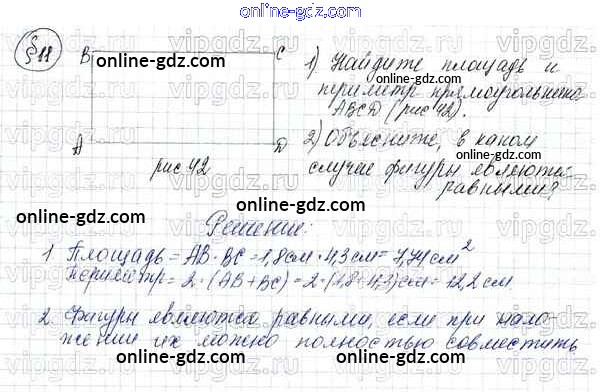 online-gdz.com
§11
B C
A D
рис 42
1) Найдите площадь и
периметр прямоугольника
ABCD (рис 42).
2) Объясните, в каком
случае фигуры являются
равными?
Решение:
1 Площадь = AB · BC = 1,8см · 4,3см = 7,74см²
Периметр = 2 · (AB + BC) = 2 · (1,8 + 4,3)см = 12,2 см.
2. Фигуры являются равными, если при нало-
жении их можно полностью совместить
online-gdz.com
online-gdz.com
online-gdz.com
online-gdz.com
online-gdz.com
online-gdz.com
online-gdz.com
online-gdz.com
online-gdz.com
vipgdz.ru